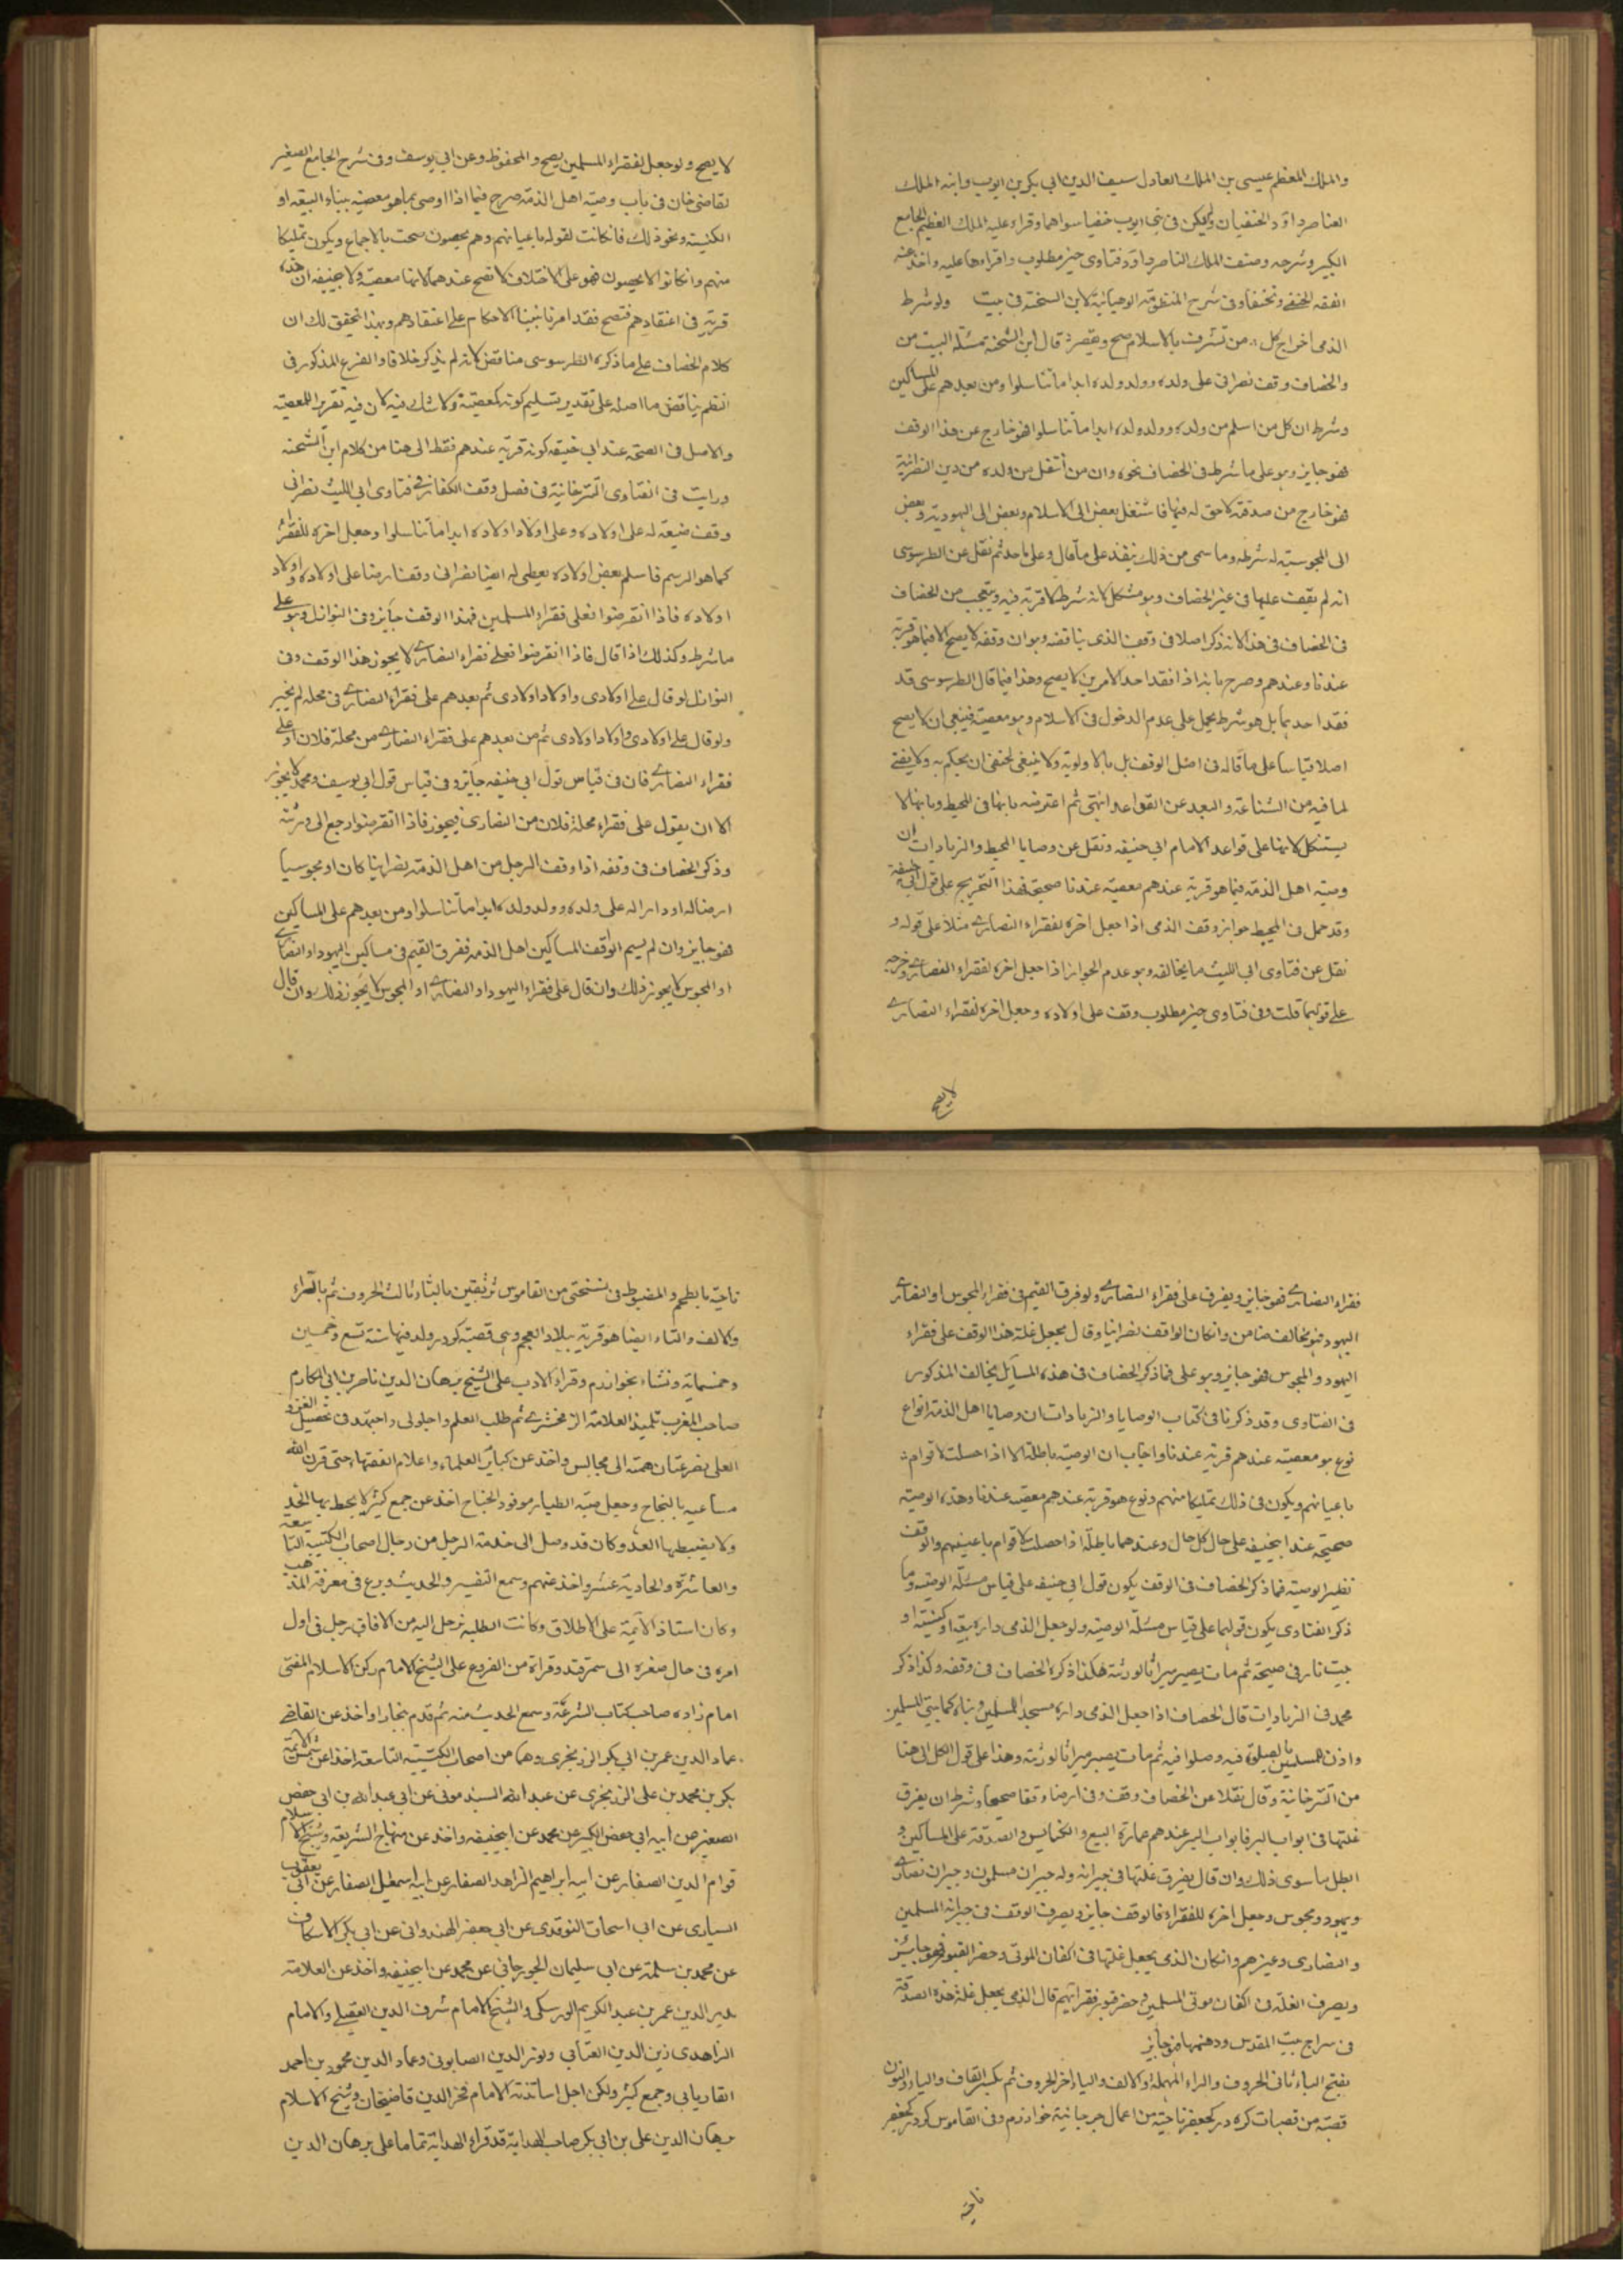 والملك المعظم عيسى بن الملك العادل سيف الدين ابى بكر بن ايوب وابنه الملك
الناصر داود الحنفيان ولم يكن فى بنى ايوب حنفيا سواهما وقراء عليه الملك المعظم الجامع
الكبير وشرحه وصنف الملك الناصر داود فتاوى خير مطلوب واقراءها عليه واخذ عنه
الفقه للحنفى وتحنفا وفى شرح المنظومة الوهبانية لابن الشحنة فى بيت ولو شرط
الذمى اخراج كل من تشرف بالاسلام صح ويقصر قال ابن الشحنة مسئلة البيت من
والخصاف وقف نصرانى على ولده وولد ولده ابدا ما تناسلوا ومن بعدهم على المساكين
وشرط ان كل من اسلم من ولده وولد ولده ابدا ما تناسلوا فهو خارج عن هذا الوقف
فهو جايز وهو على ما شرط فى الخصاف نحوه وان من انتقل من ولده من دين النصرانية
فهو خارج من صدقته لا حق له فيها فانتقل بعض الى الاسلام وبعض الى اليهودية وبعض
الى المجوسية له شرطه وما سمى من ذلك ينفذ على ما قال وعلى ما حد ثم نقل عن الطرسوسى
انه لم يقف عليها فى غير الخصاف وهو مشكل لانه شرط لا قربة فيه ويتعجب من الخصاف
فى الخصاف فى هذا لانه ذكر اصلا فى وقف الذى يناقضه وهو ان وقفه لا يصح الا فيما هو قربة
عندنا وعندهم وصرح بانه اذا فقد احد الامرين لا يصح وهذا فيما قال الطرسوسى قد
فقد احدهما بل هو شرط يحمل على عدم الدخول فى الاسلام وهو معصية فينبغى ان لا يصح
اصلا قياسا على ما قاله فى اصل الوقف بل بالاولوية ولا ينبغى لحنفى ان يحكم به ولا يفتى
لما فيه من الشناعة والبعد عن القواعد انتهى ثم اعترضه بانها فى المحيط وبانها لا
يستشكل لانها على قواعد الامام ابى حنيفه ونقل عن وصايا المحيط والزيادات ان
وصية اهل الذمة فيما هو قربة عندهم معصية عندنا صحيحة فهذا التخريج على قول ابى حنيفة
وقد حمل فى المحيط جواز وقف الذمى اذا جعل اخره لفقراء النصارى مثلا على قوله و
نقل عن فتاوى ابى الليث ما يخالفه وهو عدم الجواز اذا جعل اخره لفقراء النصارى وخرجه
على قولهما قلت وفى فتاوى خير مطلوب وقف على اولاده وجعل اخره لفقراء النصارى
لا يصح
لا يصح ولو جعل لفقراء المسلمين يصح والمحفوظ وعن ابى يوسف وفى شرح الجامع الصغير
لقاضى خان فى باب وصية اهل الذمة صرح فيما اذا اوصى بما هو معصية ببناء البيعة او
الكنيسة ونحو ذلك فان كانت لقوم باعيانهم وهم يحصون صحت بالاجماع ويكون تمليكا
منهم وان كانوا لا يحصون فهو على الاختلاف لا تصح عندهما لانها معصية ولابى حنيفه ان هذه
قربة فى اعتقادهم فتصح فقد امرنا بتبنا الاحكام على اعتقادهم وبهذا تحقق لك ان
كلام الخصاف على ما ذكره الطرسوسى مناقض لانه لم يذكر خلافا والفرع المذكور فى
النظم يناقض ما اصله على تقدير تسليم كونه كمعصية ولا شك فيه لان فيه تقرير المعصية
والاصل فى الصحة عند ابى حنيفه كونه قربة عندهم فقط الى هنا من كلام ابن الشحنه
ورايت فى الفتاوى التترخانية فى فصل وقف الكفار فى فتاوى ابى الليث نصرانى
وقف ضيعة له على اولاده وعلى اولاد اولاده ابدا ما تناسلوا وجعل اخره للفقراء
كما هو الرسم فاسلم بعض اولاده يعطى له ايضا نصرانى وقف ارضا على اولاده واولاد
اولاده فاذا انقرضوا فعلى فقراء المسلمين فهذا الوقف جايز وفى النوازل وهو على
ما شرط وكذلك اذا قال فاذا انقرضوا فعلى فقراء النصارى لا يجوز هذا الوقف وفى
النوازل لو قال على اولادى واولاد اولادى ثم بعدهم على فقراء النصارى فى محله لم يخير
ولو قال على اولادى واولاد اولادى ثم من بعدهم على فقراء النصارى من محلة فلان او على
فقراء النصارى فان فى قياس قول ابى حنيفه جايز وفى قياس قول ابى يوسف ومحمد لا يجوز
الا ان يقول على فقراء محلة فلان من النصارى فيجوز فاذا انقرضوا رجع الى ورثته
وذكر الخصاف فى وقفه اذا وقف الرجل من اهل الذمة نصرانيا كان او مجوسيا
ارضا له او دارا له على ولده وولد ولده ابدا ما تناسلوا ومن بعدهم على المساكين
فهو جايز وان لم يسم الوقف المساكين اهل الذمه ففرق القيم فى مساكين اليهود او النصارى
او المجوس لا يجوز ذلك وان قال على فقراء اليهود او النصارى او المجوس لا يجوز ذلك وان قال
فقراء النصارى فهو جايز ويفرق على فقراء النصارى ولو فرق القيم فى فقراء المجوس او النصارى
اليهود فهو مخالف ضامن وان كان الواقف نصرانيا وقال يجعل غلة هذا الوقف على فقراء
اليهود والمجوس فهو جايز وهو على فما ذكر الخصاف فى هذه المسايل يخالف المذكور
فى الفتاوى وقد ذكرنا فى كتاب الوصايا والزيادات ان وصايا اهل الذمة انواع
نوع هو معصية عندهم قربة عندنا واجاب ان الوصية باطلة الا اذا حصلت لاقوام
باعيانهم ويكون فى ذلك تمليكا منهم ونوع هو قربة عندهم معصية عندنا وهذه الوصية
صحيحة عند ابيحنيفه على حال كل حال وعندهما باطلة اذا حصلت لاقوام باعينهم والوقف
نظير الوصية فما ذكر الخصاف فى الوقف يكون قول ابى حنيفه على قياس مسئلة الوصية وما
ذكر الفتاوى يكون قولهما على قياس مسئلة الوصية ولو جعل الذمى داره بيعة او كنيسة او
بيت نار فى صحته ثم مات يصير ميراثا لورثته هكذا ذكره الخصاف فى وقفه وكذا ذكر
محمد فى الزيادات قال الخصاف اذا جعل الذمى داره مسجد المسلمين وبناه كما يبنى المسلمين
واذن للمسلمين بالصلوة فيه وصلوا فيه ثم مات يصير ميراثا لورثته وهذا على قول الكل الى هنا
من التترخانية وقال نقلا عن الخصاف وقف وفى ارضا وقفا صحيحا وشرط ان يفرق
غلتها فى ابواب البر فابواب البر عندهم عمارة البيع والكنايس والصدقة على المساكين و
ابطل ما سوى ذلك وان قال يفرق غلتها فى جيرانه وله جيران مسلمون وجيران نصارى
ويهود ومجوس وجعل اخره للفقراء فالوقف جايز ويصرف الوقف فى جيرانه المسلمين
والنصارى وغيرهم وان كان الذى يجعل غلتها فى اكفان الموتى وحفر القبور فهو جايز
ويصرف الغلة فى اكفان موتى المسلمين وحفر قبور فقرائهم قال الذمى يجعل غلة هذه الصدقة
فى سراج بيت المقدس ودهنها فهو جايز
بفتح الباء ثانى الحروف والراء المهملة والالف والياء اخر الحروف ثم بكسر القاف والياء والنون
قصبة من قصبات كردر كجعفر ناحية من اعمال جرجانية خوارزم وفى القاموس كردر كجعفر
ناحية
ناحية بالعجم والمضبوط فى نسختى من القاموس بالثاء ثالث الحروف ثم بالراء
والالف والتاء ايضا هو قرية ببلاد العجم وهى قصبة كودر ولد فيها سنة تسع وخمسين
وخمسماية ونشاء بخوارزم وقراء الادب على الشيخ برهان الدين ناصر بن ابى المكارم
صاحب المغرب تلميذ العلامة الزمخشرى ثم طلب العلم واجتهد فى تحصيل
العلى همته الى مجالس واخذ عن كبار العلماء واعلام الفقهاء حتى قرن الله
مساعيه بالنجاح وجعل صيته الطيار موفور الجناح اخذ عن جمع كثير لا يحيط بها الحد
ولا يضبطها العد وكان قد وصل الى خدمة الرجل من رجال اصحاب الكتيبة التاسعة
والعاشرة والحادية عشر واخذ عنهم وسمع التفسير والحديث وبرع فى معرفة المذهب
وكان استاذ الايمة على الاطلاق وكانت الطلبه ترحل اليه من الافاق رحل فى اول
امره فى حال صغره الى سمرقند وقراة من الفروع على الشيخ الامام ركن الاسلام المفتى
امام زاده صاحب كتاب الشرعة وسمع الحديث منه ثم قدم بخارا واخذ عن القاضى
عماد الدين عمر بن ابى بكر الزرنجرى وهما من اصحاب الكتيبة التاسعة اخذا عن شمس الائمة
بكر بن محمد بن على الزرنجرى عن عبد الله السبذمونى عن ابى عبد الله بن ابى حفص
الصغير عن ابيه ابى حفص الكبير عن محمد عن ابيحنيفه واخذ عن منهاج الشريعة وشيخ الاسلام
قوام الدين الصفار عن ابيه ابراهيم الزاهد الصفار عن ابيه اسمعيل الصفار عن ابى يعقوب
السيارى عن ابى اسحاق النوقدى عن ابى جعفر الهندوانى عن ابى بكر الاسكاف
عن محمد بن سلمة عن ابى سليمان الجوزجانى عن محمد عن ابيحنيفه واخذ عن العلامة
بدر الدين عمر بن عبد الكريم الورسكى والشيخ الامام شرف الدين العقيلى والامام
الزاهدى زين الدين العتابى ونور الدين الصابونى وعماد الدين محمود بن احمد
الفاريابى وجمع كثير ولكن اجل اساتذته الامام فخر الدين قاضيخان وشيخ الاسلام
برهان الدين على بن ابى بكر صاحب الهداية قد قراء الهداية تماما على برهان الدين